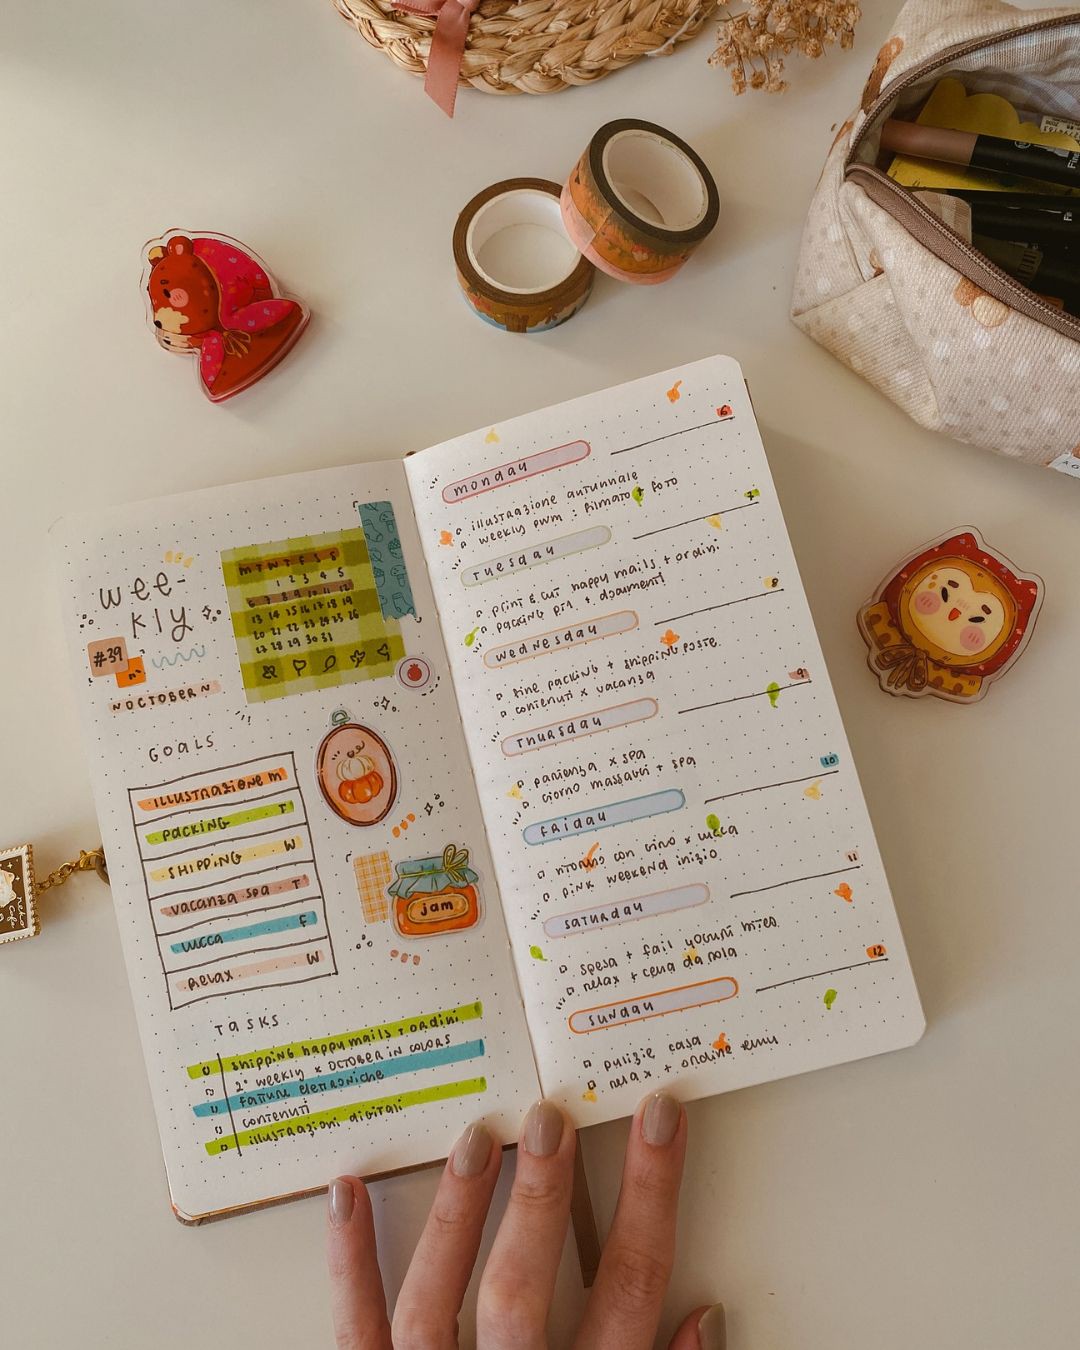 wee-
kly
#39
OCTOBER
M T W T F S S
1 2 3 4 5
6 7 8 9 10 11 12
13 14 15 16 17 18 19
20 21 22 23 24 25 26
27 28 29 30 31
GOALS
ILLUSTRAZIONE M
PACKING T
SHIPPING W
VACANZA SPA T
LUCCA F
RELAX W
jam
TASKS
shipping happy mails + ordini
2° weekly x OCTOBER IN COLORS
fatture elettroniche
contenuti
illustrazioni digitali
monday 6
illustrazione autunnale
weekly pwm : filmato + foto
Tuesday 7
print & cut happy mails + ordini
packing pt.1 + documenti
wednesday 8
fine packing + shipping poste
contenuti x vacanza
Thursday 9
partenza x spa
giorno massaggi + spa
friday 10
ritorno con giro x lucca
pink weekend inizio
saturday 11
spesa + fail yogurt
relax + cena da
sunday 12
pulizie casa
relax + ordine